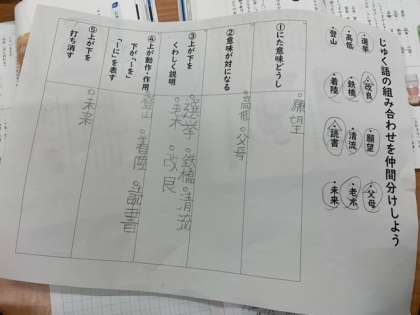 じゅく語の組み合わせを仲間分けしよう
・選挙 ・改良 ・願望 ・父母
・高低 ・鉄橋 ・清流 ・老木
・登山 ・着陸 ・読書 ・未来
①にた意味どうし
願望
②意味が対になる
高低 父母
③上が下を
くわしく説明
選挙 鉄橋 清流
老木 改良
④上が動作・作用、
下が「―を」
「―に」を表す
登山 着陸 読書
⑤上が下を
打ち消す
未来